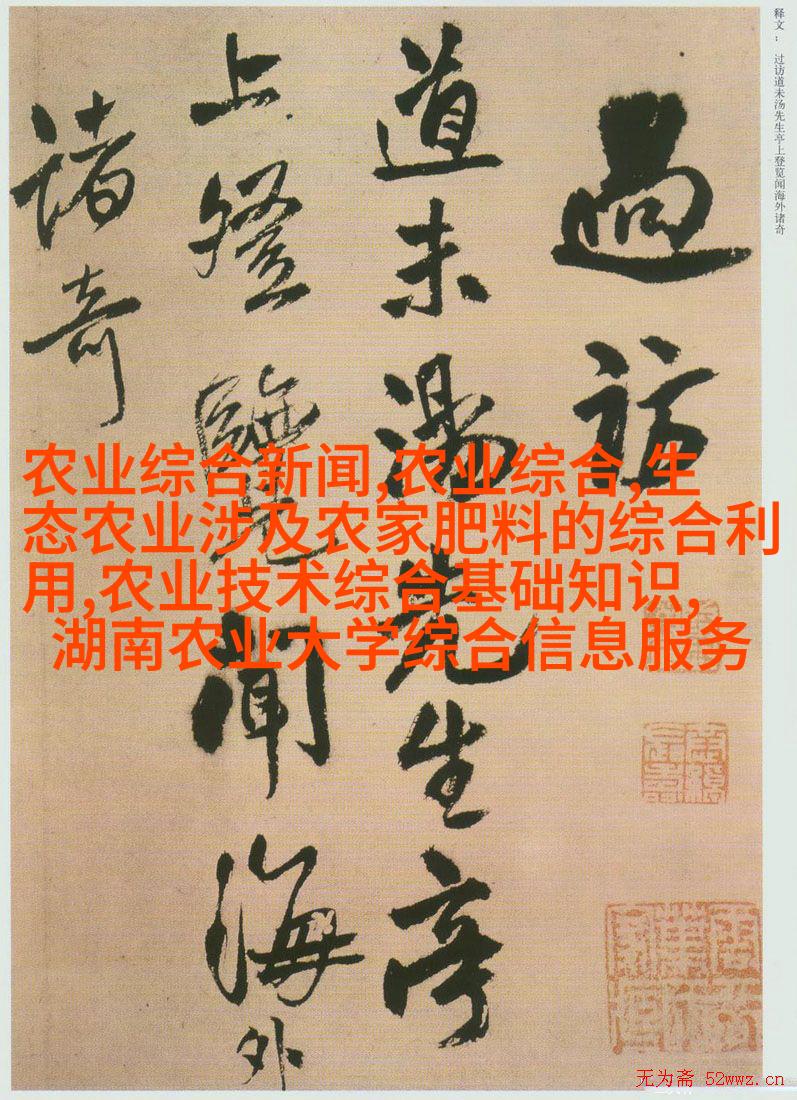 释文： 过访道未汤先生亭上登览闻海外诸奇
過訪
道未湯先生亭
上登覽聞海外
諸奇
农业综合新闻,农业综合,生
态农业涉及农家肥料的综合利
用,农业技术综合基础知识,
湖南农业大学综合信息服务
无为斋 52wwz.cn